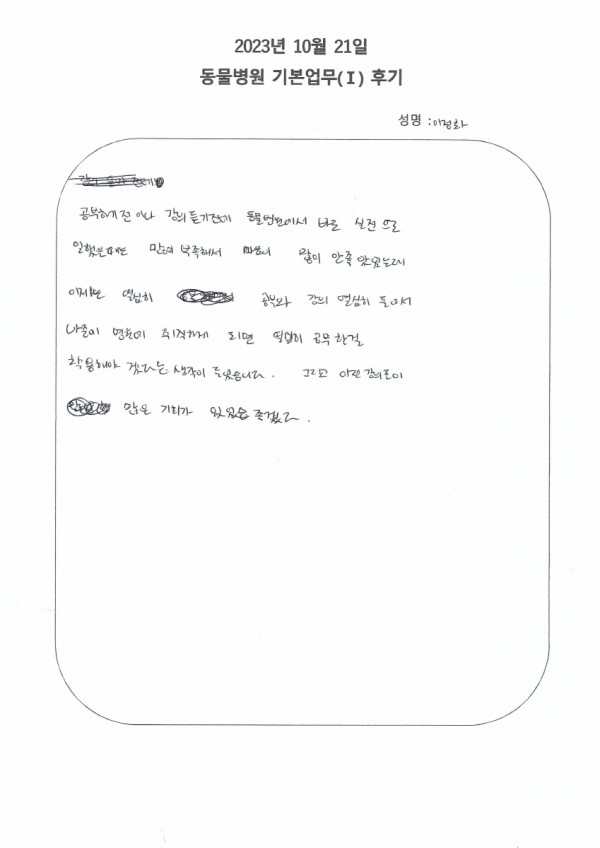 2023년 10월 21일
동물병원 기본업무(Ⅰ) 후기
성명 : 이정화
공부하기 전 이나 강의 듣기전에 동물병원에서 바로 실전 으로
일했을때는 많이 부족해서 많이 안좋았었는데
이제는 열심히 공부와 강의 열심히 들어서
나중에 병원에 취직하게 되면 열심히 공부한걸
활용해야 겠다는 생각이 들었습니다. 그리고 이런 강의로
많은 기회가 있었음 좋겠다.